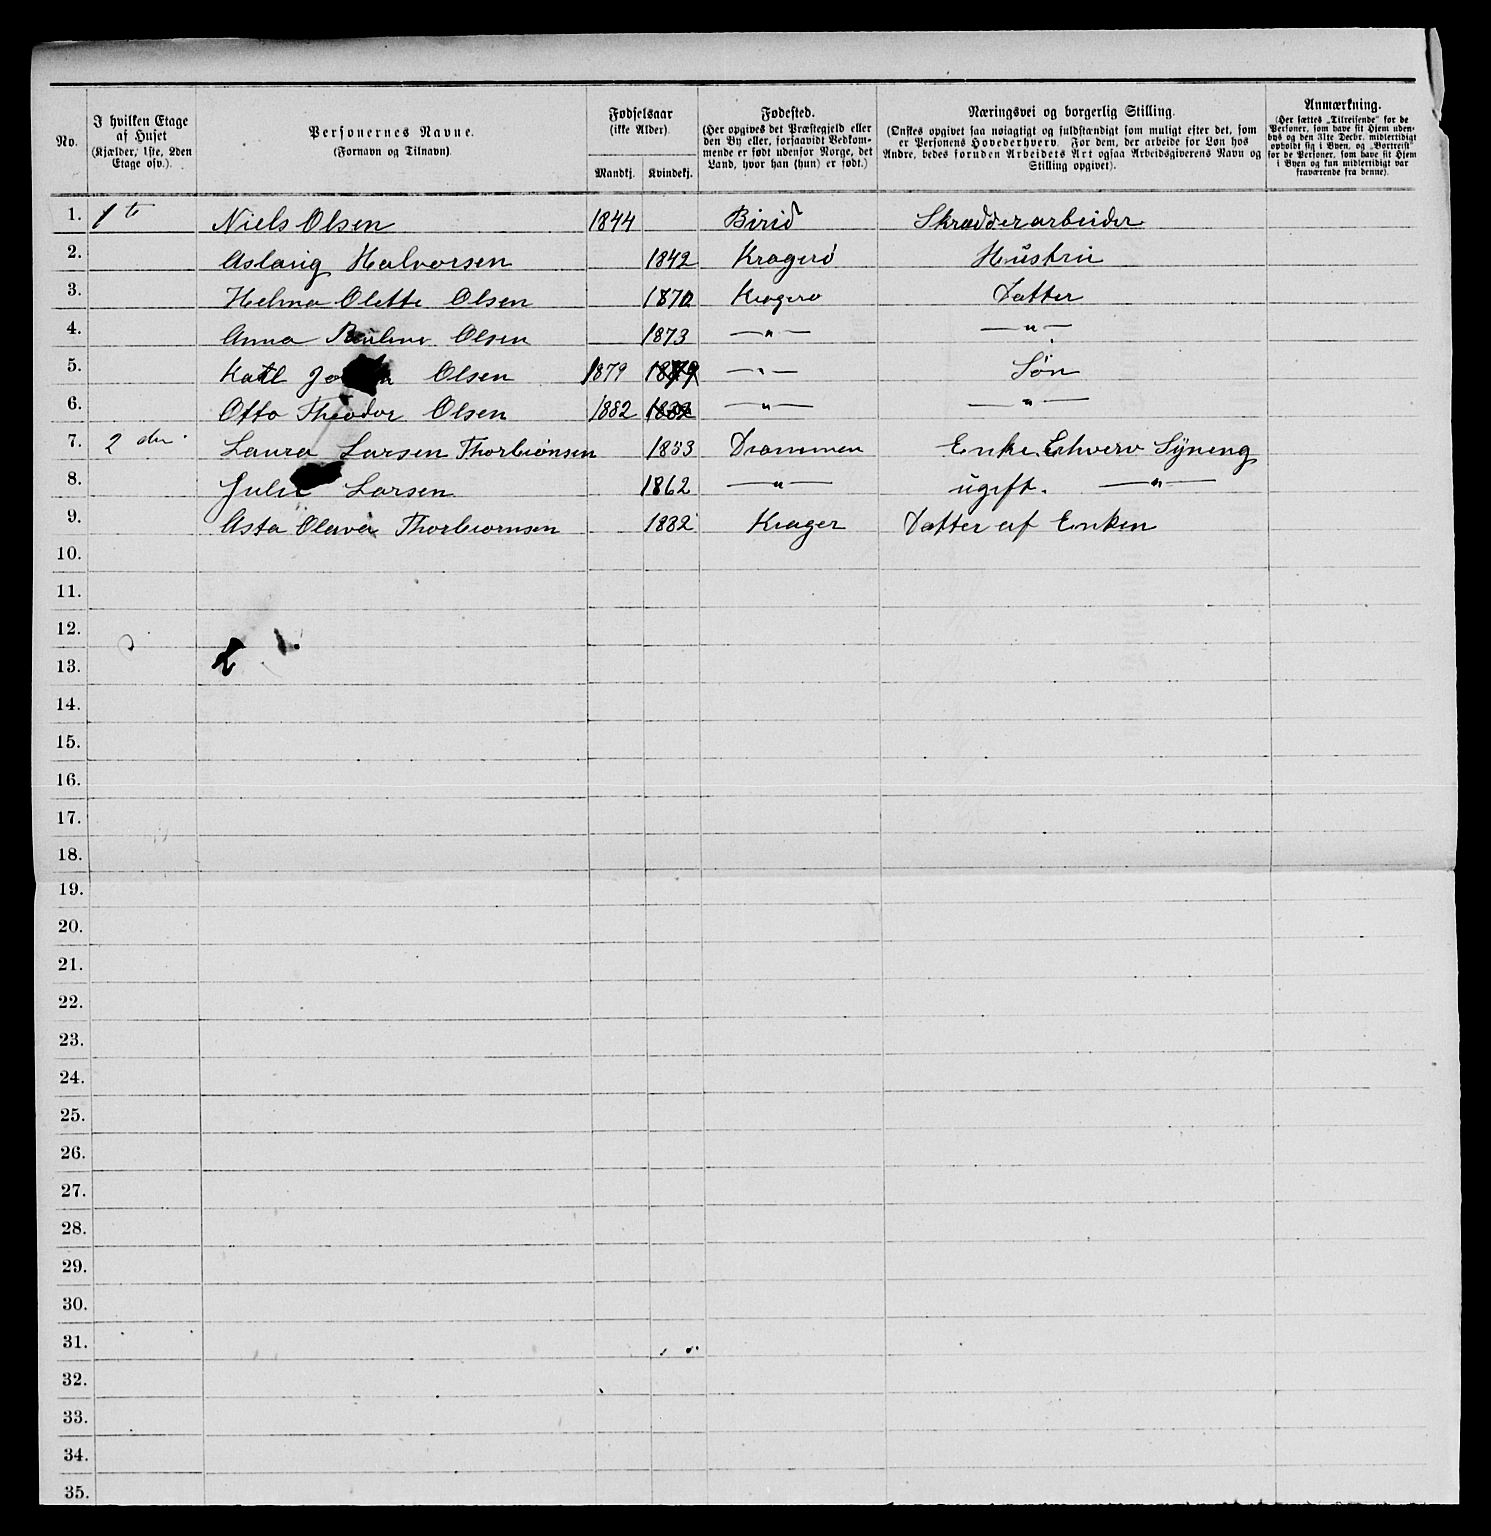 No. | I hvilken Etage af Huset (Kjælder, 1ste, 2den Etage osv.). | Personernes Navne. (Fornavn og Tilnavn). | Fødselsaar (ikke Alder). Mandkj. | Kvindekj. | Fødested. (Her opgives det Præstegjeld eller den By eller, forsaavidt Vedkommende er født udenfor Norge, det Land, hvor han (hun) er født.) | Næringsvei og borgerlig Stilling. (Ønskes opgivet saa nøiagtigt og fuldstændigt som muligt efter det, som er Personens Hovederhverv. For dem, der arbeide for Løn hos Andre, bedes foruden Arbeidets Art ogsaa Arbeidsgiverens Navn og Stilling opgivet). | Anmærkning. (Her sættes „Tilreisende“ for de Personer, som have sit Hjem udenbys og den 31te Decbr. midlertidigt opholdt sig i Byen, og „Bortreist“ for de Personer, som have sit Hjem i Byen og kun midlertidigt var fraværende fra denne).
1. 1te Niels Olsen 1844 Birid Skrædderarbeider
2. Aslaug Halvorsen 1842 Kragerö Hustru
3. Helma Olette Olsen 1870 Kragerø Datter
4. Anna Olsen 1873 —„— —„—
5. Karl Olsen 1879 1879 —„— Søn
6. Otto Theodor Olsen 1882 1882 —„— —„—
7. 2den Laura Larsen Thorbiønsen 1853 Drammen Enke, Erhverv Syning
8. Julie Larsen 1862 —„— ugift. —„—
9. Asta Olava Thorbiørnsen 1882 Krager Datter af Enken
10.
11.
12.
13.
14.
15.
16.
17.
18.
19.
20.
21.
22.
23.
24.
25.
26.
27.
28.
29.
30.
31.
32.
33.
34.
35.